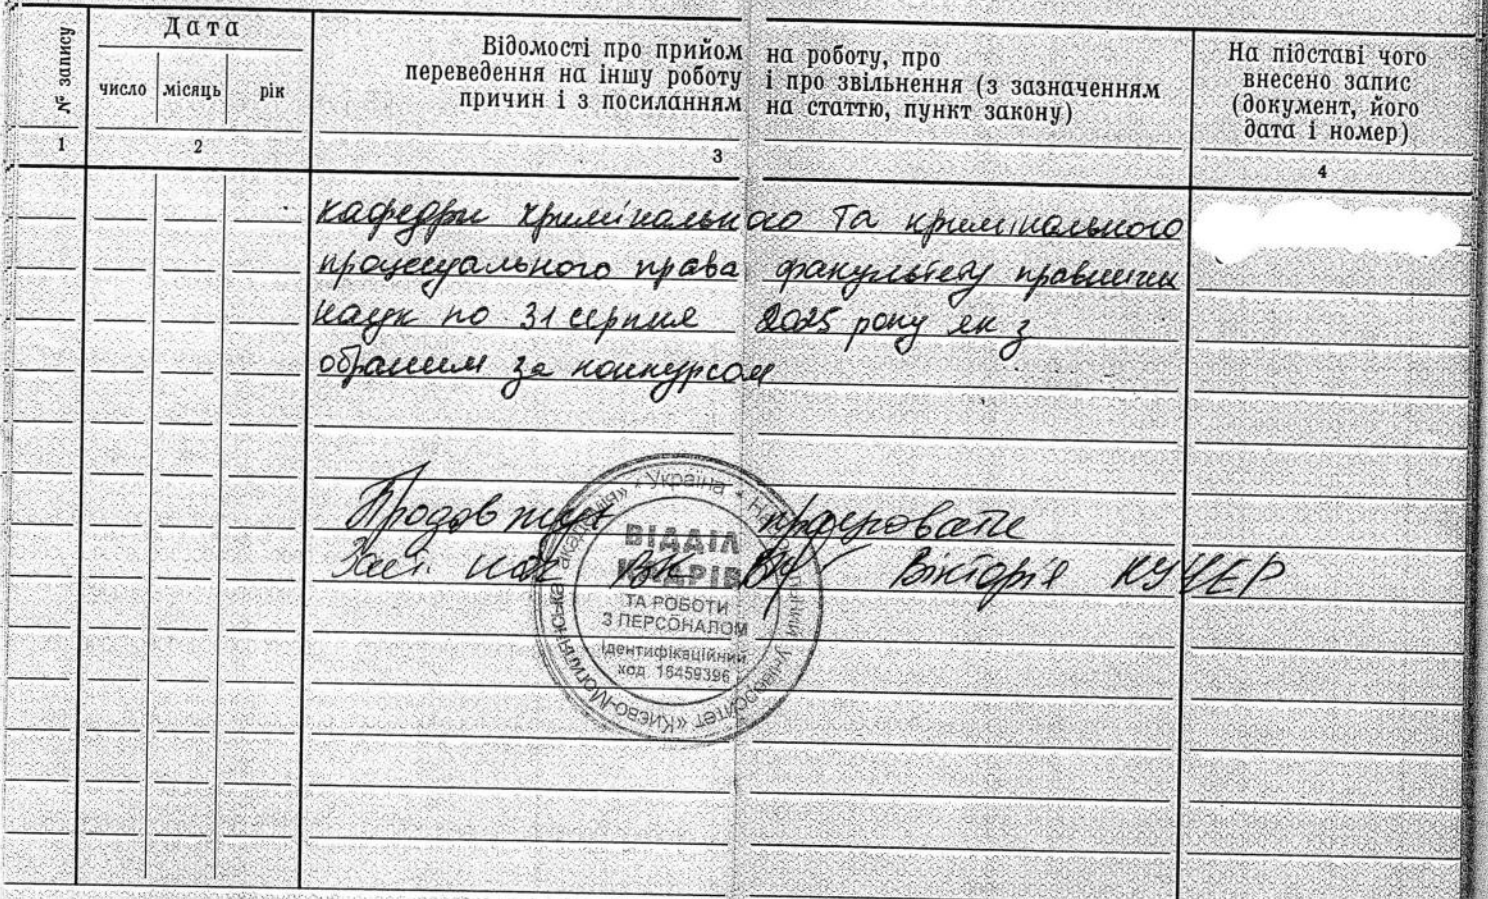 № запису
Дата
число місяць рік
Відомості про прийом на роботу, про
переведення на іншу роботу і про звільнення (з зазначенням
причин і з посиланням на статтю, пункт закону)
На підставі чого
внесено запис
(документ, його
дата і номер)
1 2 3 4
кафедри кримінального та кримінального
процесуального права факультету правничих
наук по 31 серпня 2025 року як з
обраним за конкурсом
Продовжує працювати
Заст. нач ВК Вікторія КУЧЕР
Україна * Національний університет «Києво-Могилянська академія» *
ВІДДІЛ
КАДРІВ
ТА РОБОТИ
З ПЕРСОНАЛОМ
Ідентифікаційний
код 16459396